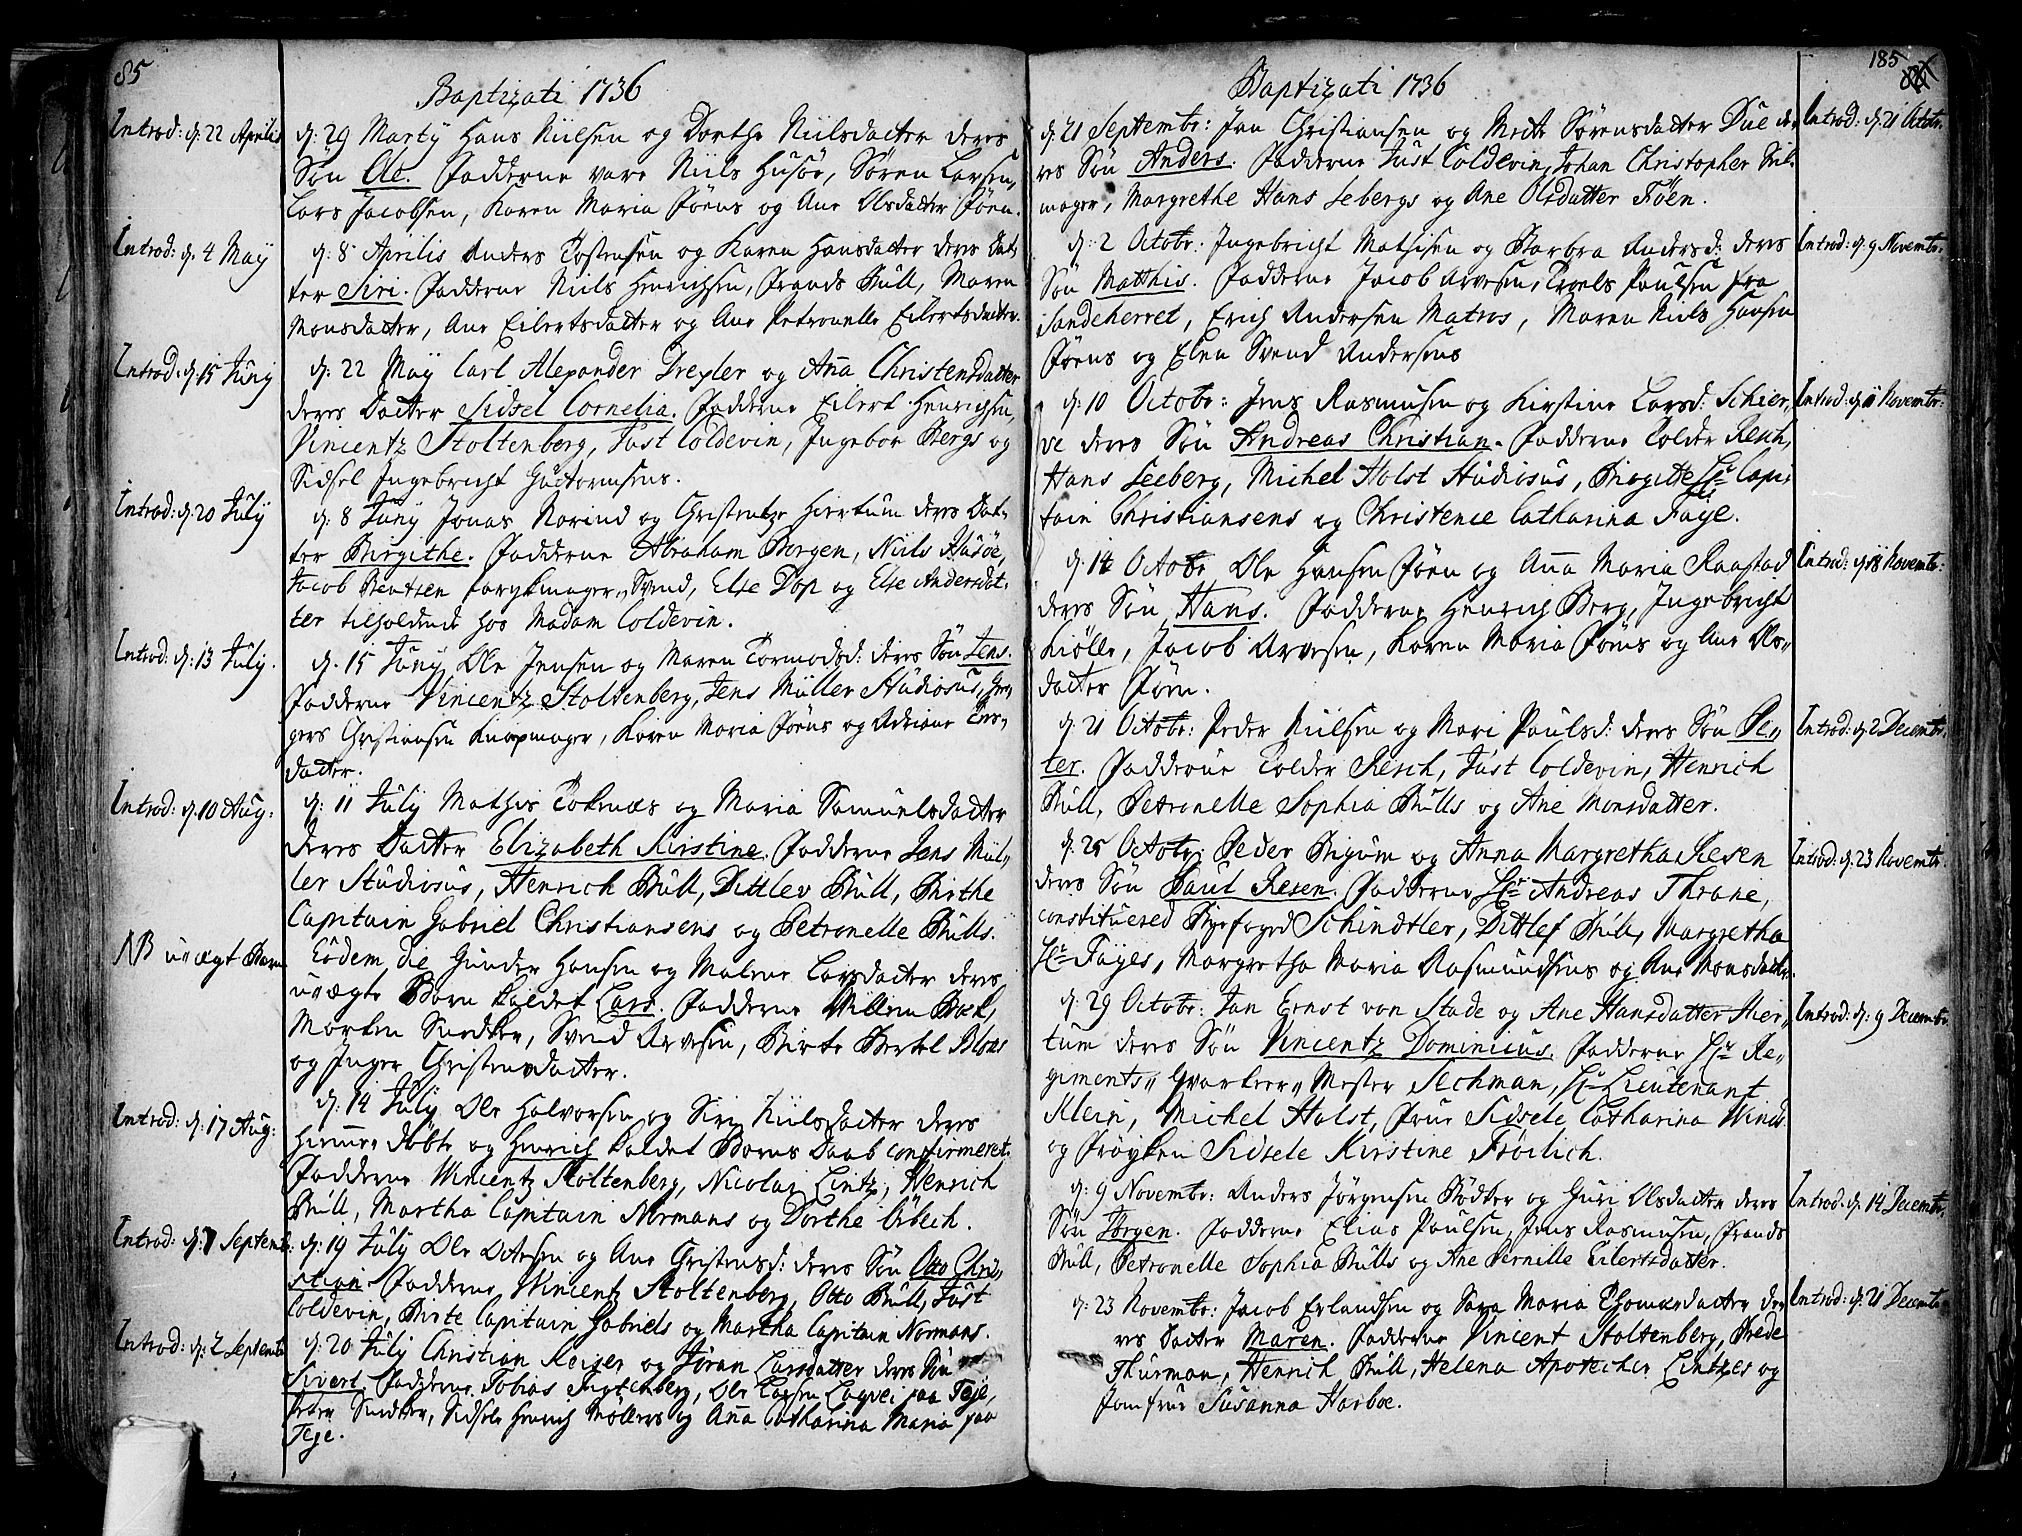 85
Baptizati 1736
Introd: d. 22 Aprilis
d: 29 Martÿ Hans Niilsen og Dorthe Niilsdatter deres
Søn Ole. Fadderne vare Niils Husöe, Søren Larsen,
Lars Jacobsen, Karen Maria Föens og Ane Olsdatter Föen.
Introd: d. 4 Maÿ
d: 8 Aprilis Anders Tostensen og Karen Hansdatter deres Dat-
ter Siri. Fadderne Niils Henrichsen, Frands Büll, Maren
Monsdatter, Ane Eilertsdatter og Ane Petronelle Eilertsdatter.
Introd: d: 15 Junÿ
d: 22 Maÿ Carl Alexander Drexler og Aña Christensdatter
deres Datter Sidsel Cornelia. Fadderne Eilert Henrichsen,
Vincentz Stoltenberg, Just Coldevin, Ingebor Bergs og
Sidsel Ingebricht Guttormsens.
Introd: d: 20 Julÿ
d: 8 Junÿ Jonas Norind og Christentze Hiertum deres Dat-
ter Birgithe. Fadderne Abraham Borgen, Niils Husöe,
Jacob Bentsen Parykmager Svend, Else Dop og Else Andersdat-
ter tilholdende hos Madam Coldevin.
Introd: d: 13 Julÿ.
d. 15 Junÿ Ole Jensen og Maren Tormodsd: deres Søn Jens.
Fadderne Vincentz Stoltenberg, Jens Müller Studiosus, Gre-
gers Christiansen Knapmager, Karen Maria Föens og Adriane Tor-
datter.
Introd: d. 10 Aug:
d: 11 Julÿ Mathis Toknæs og Maria Samuelsdatter
deres Datter Elizabeth Kirstine. Fadderne Jens Mül-
ler Studiosus, Henrich Büll, Dittlev Büll, Birthe
Capitain Gabriel Christiansens og Petronelle Bülls.
NB uægt Barn
Eodem die Gunder Hansen og Malene Larsdatter deres
uægte Barn kaldet Lars. Fadderne Willem Bock,
Morten Snedker, Svend Arvesen, Birte Bertel Bloks
og Inger Christensdatter.
Introd: d. 17 Aug:
d. 14 Julÿ Ole Halvorsen og Siri Niilsdatter deres
hieme döbte og Henrich kaldet Barns Daab confirmeret.
Fadderne Vincentz Stoltenberg, Nicolai Lintz, Henrich
Büll, Martha Capitain Normans og Dorthe Urbech.
Introd: d. 7 Septemb:
d: 19 Julÿ Ole Olesen og Ane Christensd: deres Søn Otto Chri-
stian Fadderne Vincentz Stoltenberg, Otto Büll, Just
Coldevin, Birte Capitain Gabriels og Martha Capitain Normans.
Introd: d: 2 Septemb:
d: 20 Julÿ Christian Keiser og Jöran Larsdatter deres Søn
Sivert. Fadderne Tobias, Ole Larsen Lagvei paa Teje,
Peter Snedker, Sidsele Henrich Möllers og Aña Catharina Maria paa
Teje.
185
Baptizati 1736
d. 21 Septembr: Jan Christiansen og Mette Sørensdatter Due de-
res Søn Anders. Fadderne Just Coldevin, Johan Christopher Sæl-
mager, Margrethe Hans Leebergs og Ane Olsdatter Föen.
Introd: d. 21 Octobr:
d: 2 Octobr: Ingebricht Mathisen og Barbra Andersd: deres
Søn Matthis. Fadderne Jacob Arvesen, Troels Paulsen fra
Sandeherret, Erich Andersen Matros, Maren Niils Hansen
Föens og Elen Svend Andersens
Introd: d: 9 Novembr:
d: 10 Octobr: Jens Rasmusen og Kirstine Larsd: Schier-
ve deres Søn Andreas Christian. Fadderne Tolder Resch,
Hans Leeberg, Michel Holst Studiosus, Birgitte Hr Capi-
tain Christiansens og Christence Catharina Faye.
Introd: d. 11 Novembr:
d. 14 Octobr Ole Hansen Föen og Aña Maria Raastad
deres Søn Hans. Fadderne Henrich Berg, Ingebricht
Kiölle, Jacob Arvesen, Karen Maria Föens og Ane Ols-
datter Föen.
Introd: d. 18 Novembr:
d: 21 Octobr: Peder Niilsen og Mari Paulsd: deres Søn Pe-
ter. Fadderne Tolder Resch, Just Coldevin, Henrich
Büll, Petronelle Sophia Bülls og Ane Monsdatter.
Introd: d. 2 Decembr:
d. 25 Octobr: Peder Bigum og Anna Margretha Resen
deres Søn Paul Resen. Fadderne Hr Andreas Thrane,
constituered Byefoged Schindtler, Dittlef Büll, Margretha
Hr Fayes, Margretha Maria Rasmundsens og Ane Monsdatter.
Introd: d. 23 Novembr:
d: 29 Octobr: Jan Ernst von Stade og Ane Hansdatter Hier-
tum deres Søn Vincentz Dominicus. Fadderne Hr Re-
giments Qvarteer Mester Aschman, Hr Lieutenant
Klein, Michel Holst, Frue Sidsele Catharina Winds
og Fröyken Sidsele Kirstine Fröilich.
Introd: d: 9 Decembr.
d: 9 Novembr: Anders Jörgensen Bödker og Guri Olsdatter deres
Søn Jörgen. Fadderne Elias Paulsen, Jens Rasmusen, Frands
Büll, Petronelle Sophia Bülls og Ane Pernille Eilertsdatter.
Introd. d. 14 Decembr.
d: 23 Novembr: Jacob Erlandsen og Sara Maria Thomasdatter de-
res Datter Maren. Fadderne Vincent Stoltenberg, Brede
Thurman, Henrich Büll, Helena Apotecher Lintzes og
Jomfrue Susanna Harboe.
Introd: d: 21 Decembr